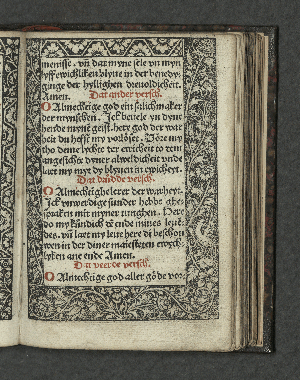 menisse. vñ dat myne sele vñ myn
lyff ewichliken blyue in der benedy-
ginge der hyllighen dreuoldicheit.
Amen. Dat ander versch.
O Almechtige god ein salichmaker
der mynschen. Jck beuele yn dyne
hende mynē geist. here god der war
heit du heffst my vorlöset. Vöre my
tho deme lychte der ewicheit to dem
angesichte dyner alweldicheit vnde
laet my myt dy blyuen in ewicheyt.
Dat drüdde versch.
O Almechtighe lerer der warheyt.
Jck vnwerdige sunder hebbe ghe-
spraken mit myner tunghen. Here
do my kündich dē ende mines leuē-
des. vñ laet my leue here dī beschou
wen in der diner maiesteten ewych-
lyken ane ende Amen.
Dat veerde versch.
O Almechtige god aller göde vor-